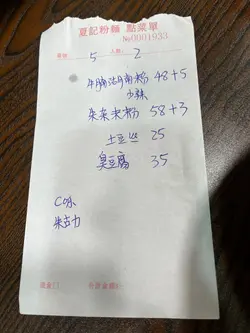 夏記粉麵 點菜單
№0001933
5 人數: 2
牛腩湖南粉 48+5
小辣
朱朱米粉 58+3
土豆丝 25
臭豆腐 35
C冰
朱古力